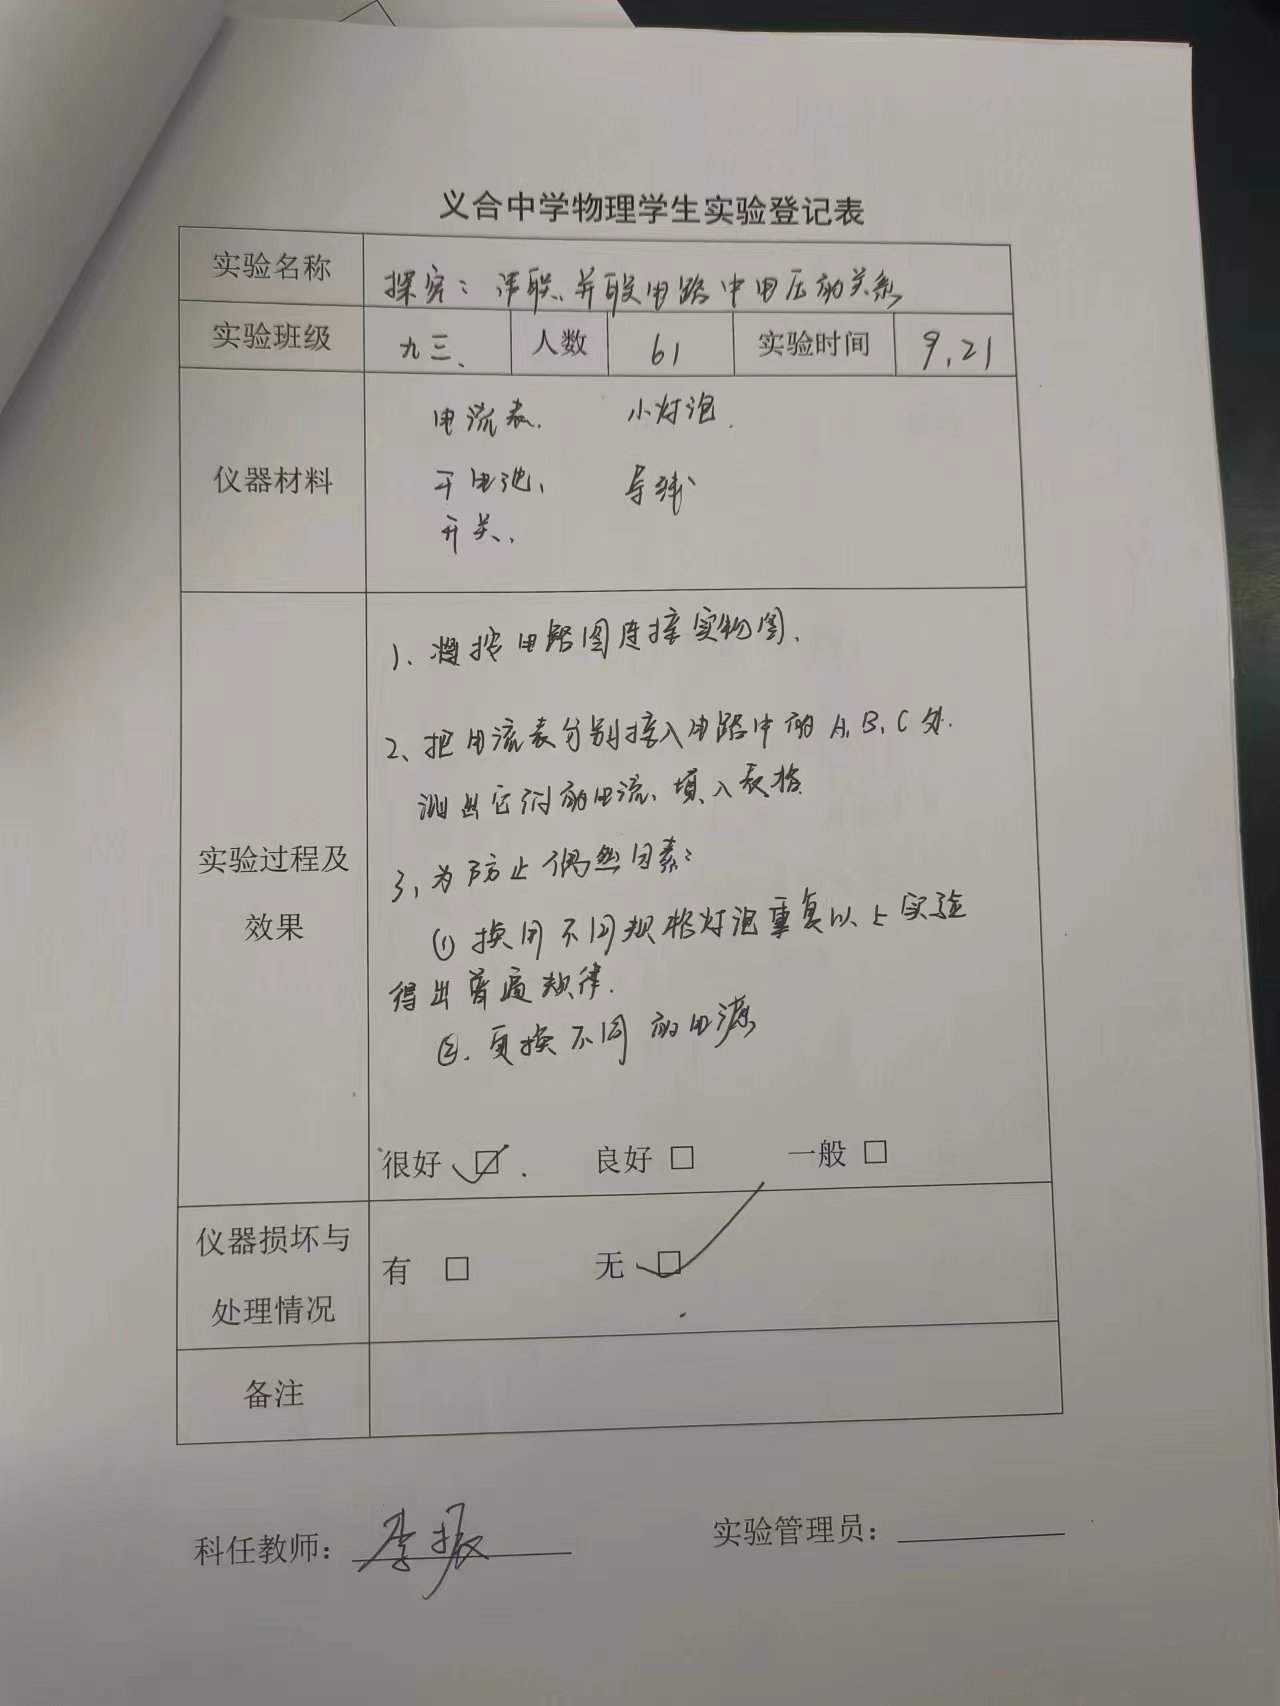 义合中学物理学生实验登记表
实验名称 探究：串联、并联电路中电压的关系
实验班级 九三、 人数 61 实验时间 9.21
电流表. 小灯泡.
仪器材料 干电池、 导线
开关、
1、遵按电路图连接实物图.
2、把电流表分别接入电路中的A、B、C处.
测出它们的电流、填入表格
实验过程及
3、为防止偶然因素:
效果
① 换用不同规格灯泡重复以上实验
得出普遍规律.
②、更换不同的电源
很好 ☑ . 良好 □ 一般 □
仪器损坏与
有 □ 无 ☑
处理情况
备注
科任教师：李振 实验管理员：